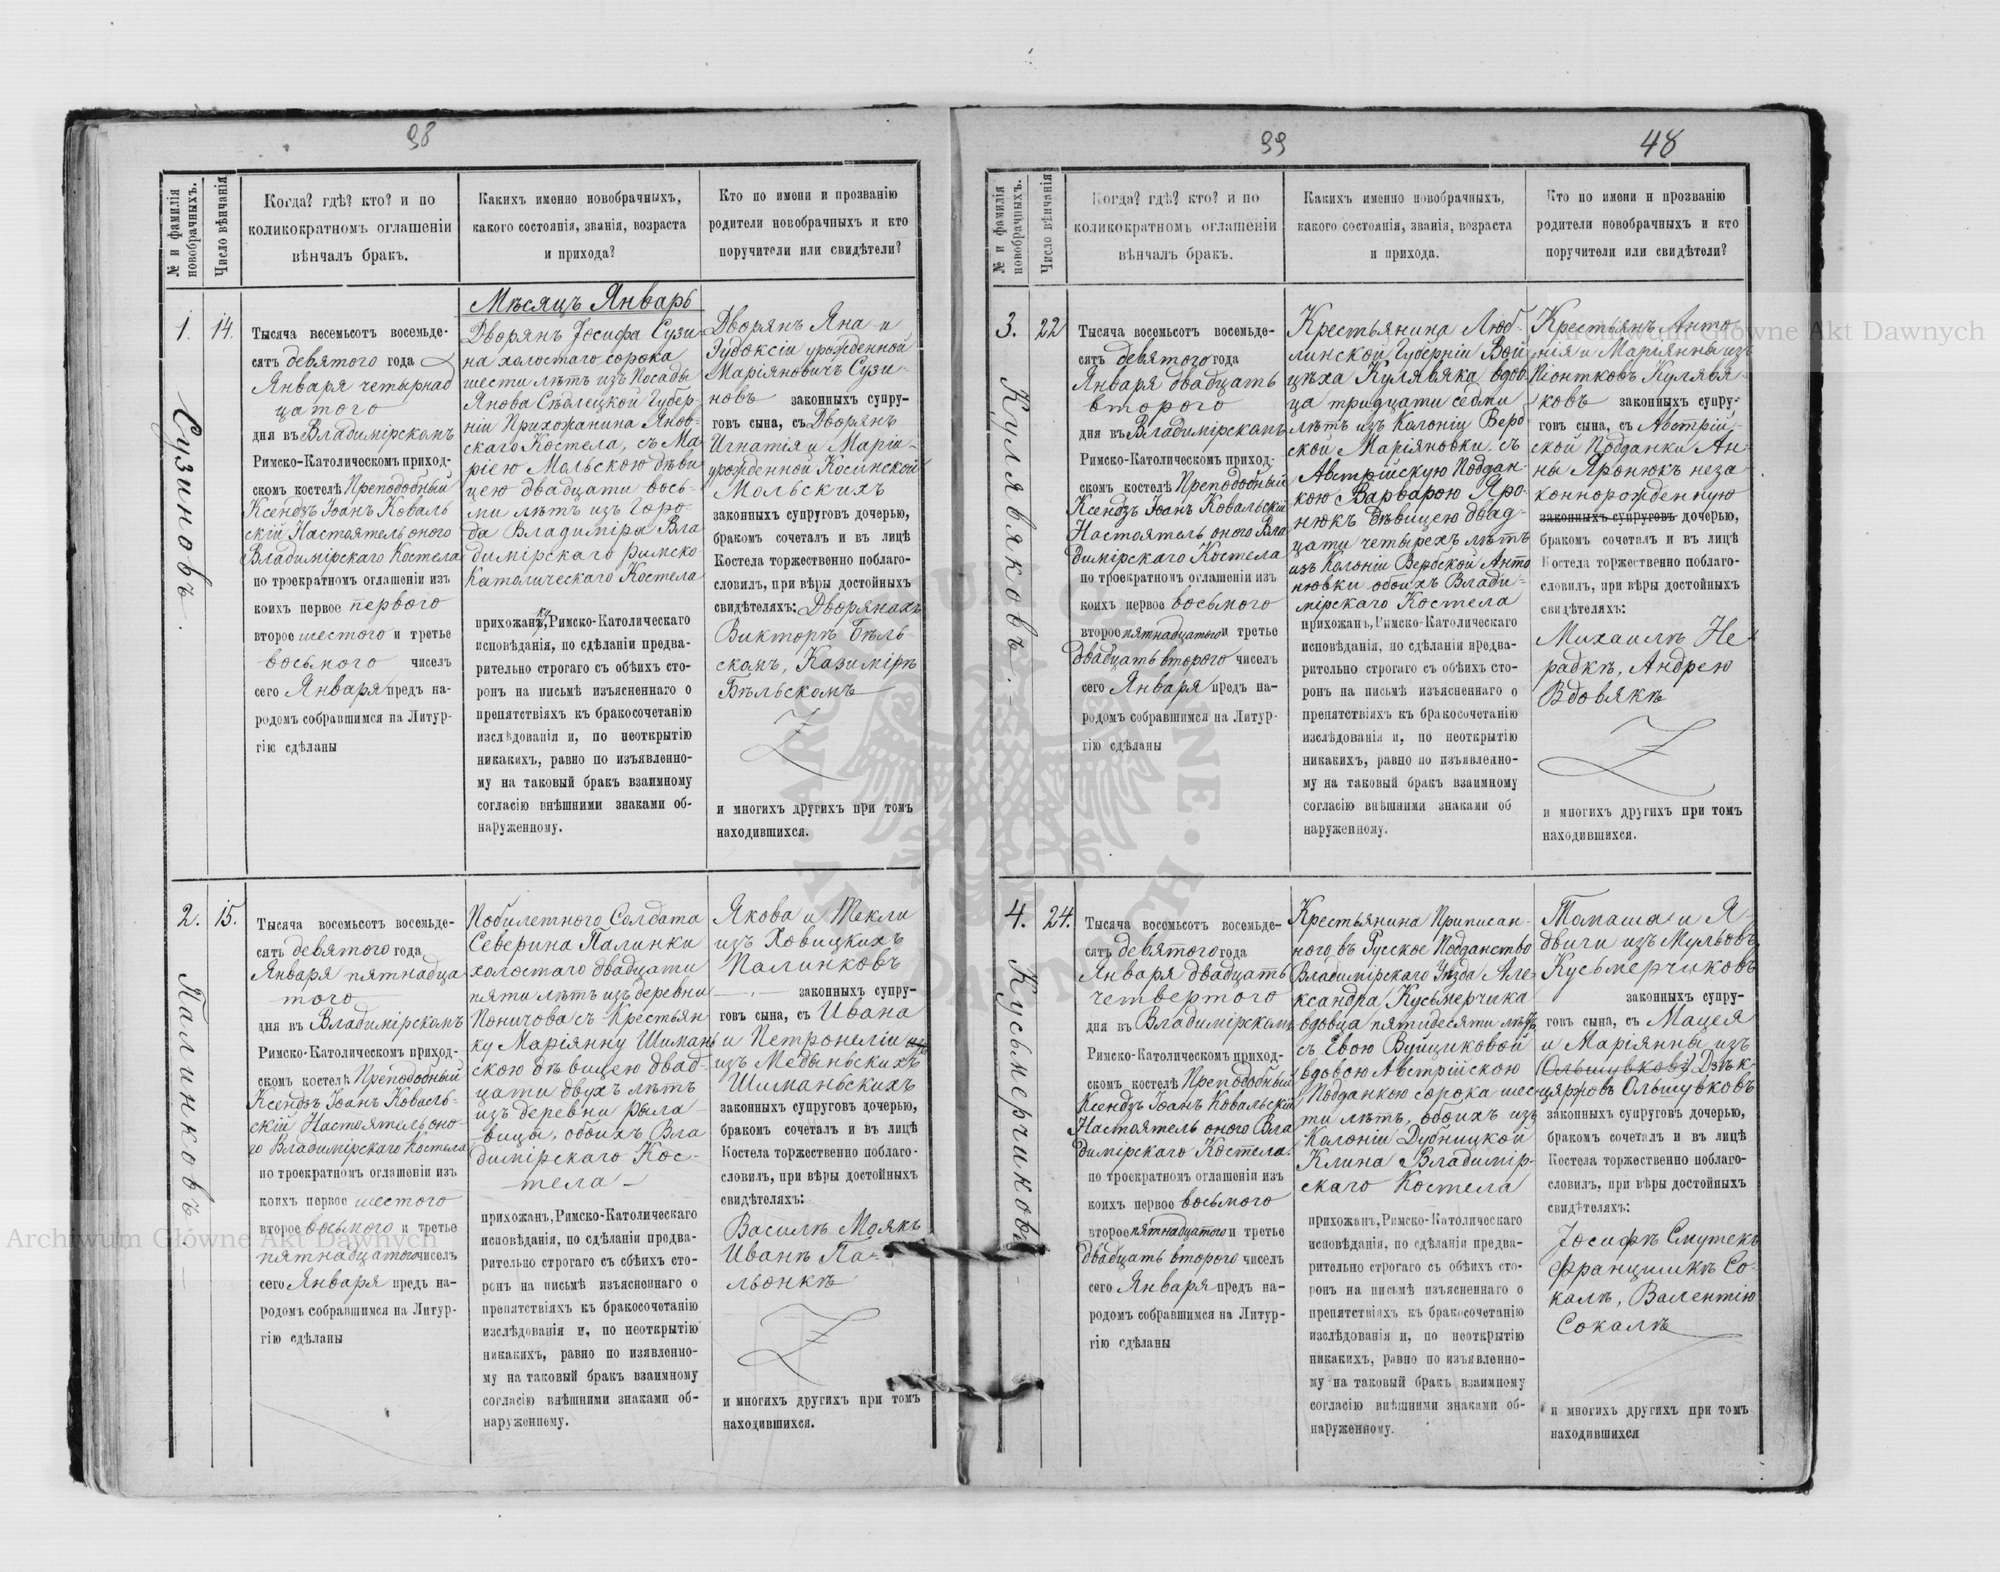 98
№ и фамилія новобрачныхъ.
Число вѣнчанія
Когда? гдѣ? кто? и по
коликократномъ оглашеніи
вѣнчалъ бракъ.
Какихъ именно новобрачныхъ,
какого состоянія, званія, возраста
и прихода?
Кто по имени и прозванію
родители новобрачныхъ и кто
поручители или свидѣтели?
1.
Сузиновъ.
14.
Тысяча восемьсотъ восемьде-
сятъ девятого года
Января четырнад
цатого
дня въ Владимірскомъ
Римско-Католическомъ приход-
скомъ костелѣ Преподобный
Ксендзъ Іоанъ Коваль
скій Настоятель оного
Владимірскаго Костела
по троекратномъ оглашеніи изъ
коихъ первое перваго
второе шестого и третье
восьмого чиселъ
сего Января предъ на-
родомъ собравшимся на Литур-
гію сдѣланы
Мѣсяцъ Январь
Дворянъ Іосифа Сузи-
на холостаго сорока
шести лѣтъ изъ Посады
Янова Сѣдлецкой Губер-
ніи Прихожанина Янов-
скаго Костела, съ Ма-
ріею Мольскою дѣви
цею двадцати вось-
ми лѣтъ изъ Горо-
да Владиміра Вла
димірскаго Римско
Католическаго Костела
прихожанъ, Римско-Католическаго
исповѣданія, по сдѣланіи предва-
рительно строгаго съ обѣихъ сто-
ронъ на письмѣ изъясненнаго о
препятствіяхъ къ бракосочетанію
изслѣдованія и, по неоткрытію
никакихъ, равно по изъявленно-
му на таковый бракъ взаимному
согласію внѣшними знаками об-
наруженному.
Дворянъ Яна и
Эудоксіи урожденной
Маріяновичъ Сузи-
новъ законныхъ супру-
говъ сына, съ Дворянъ
Игнатія и Маріи
урожденной Косинской
Мольскихъ
законныхъ супруговъ дочерью,
бракомъ сочеталъ и въ лицѣ
Костела торжественно поблаго-
словилъ, при вѣры достойныхъ
свидѣтеляхъ: Дворянахъ
Викторѣ Бѣль-
скомъ, Казимірѣ
Бѣльскомъ
и многихъ другихъ при томъ
находившихся.
2.
Палинковъ.
15.
Тысяча восемьсотъ восемьде-
сятъ девятого года
Января пятнадца
того
дня въ Владимірскомъ
Римско-Католическомъ приход-
скомъ костелѣ Преподобный
Ксендзъ Іоанъ Коваль-
скій Настоятель оно-
го Владимірскаго Костела
по троекратномъ оглашеніи изъ
коихъ первое шестого
второе восьмого и третье
пятнадцатого чиселъ
сего Января предъ на-
родомъ собравшимся на Литур-
гію сдѣланы
Побилетного Солдата
Северина Палинки
холостаго двадцати
пяти лѣтъ изъ деревни
Поничова съ Крестьян
ку Маріянну Шимань
скою дѣвицею двад-
цати двухъ лѣтъ
изъ деревни Рыла-
вицы, обоихъ Вла
димірскаго Кос-
тела
прихожанъ, Римско-Католическаго
исповѣданія, по сдѣланіи предва-
рительно строгаго съ сбѣихъ сто-
ронъ на письмѣ изъясненнаго о
препятствіяхъ къ бракосочетанію
изслѣдованія и, по неоткрытію
никакихъ, равно по изявленно-
му на таковый бракъ взаимному
согласію внѣшними знаками об-
наруженному.
Якова и Текли
изъ Ховицкихъ
Палинковъ
законныхъ супру-
говъ сына, съ Ивана
и Петронеліи
изъ Медыньскихъ
Шиманьскихъ
законныхъ супруговъ дочерью,
бракомъ сочеталъ и въ лицѣ
Костела торжественно поблаго-
словилъ, при вѣры достойныхъ
свидѣтеляхъ:
Василѣ Моякѣ
Иванѣ Па-
льонкѣ
и многихъ другихъ при томъ
находившихся.
99
48
№ и фамилія новобрачныхъ.
Число вѣнчанія
Когда? гдѣ? кто? и по
коликократномъ оглашеніи
вѣнчалъ бракъ.
Какихъ именно новобрачныхъ,
какого состоянія, званія, возраста
и прихода.
Кто по имени и прозванію
родители новобрачныхъ и кто
поручители или свидѣтели?
3.
Кулявяковъ.
22
Тысяча восемьсотъ восемьде-
сятъ девятого года
Января двадцать
второго
дня въ Владимірскомъ
Римско-Католическомъ приход-
скомъ костелѣ Преподобный
Ксендзъ Іоанъ Ковальскій
Настоятель оного Вла
димірскаго Костела
по троекратномъ оглашеніи изъ
коихъ первое восьмого
второе пятнадцатого и третье
двадцать второго чиселъ
сего Января предъ на-
родомъ собравшимся на Литур-
гію сдѣланы
Крестьянина Люб-
линской Губерніи Вой
цѣха Кулявяка вдов
ца тридцати седми
лѣтъ изъ Колоніи Верб
ской Маріяновки, съ
Австрійскую Поддан-
кою Варварою Яро-
нюкъ дѣвицею двад-
цати четырехъ лѣтъ
изъ Колоніи Вербской Анто
новки обоихъ Влади-
мірскаго Костела
прихожанъ, Римско-Католическаго
исповѣданія, по сдѣланіи предва-
рительно строгаго съ обѣихъ сто-
ронъ на письмѣ изъясненнаго о
препятствіяхъ къ бракосочетанію
изслѣдованія и, по неоткрытію
никакихъ, равно по изъявленно-
му на таковый бракъ взаимному
согласію внѣшними знаками об
наруженному.
Крестьянъ Анто
нія и Маріянны изъ
Піонтковъ Кулявя
ковъ законныхъ супру-
говъ сына, съ Австрій-
ской Подданки Ан-
ны Яронюкъ неза
коннорожденную
законныхъ супруговъ дочерью,
бракомъ сочеталъ и въ лицѣ
Костела торжественно поблаго-
словилъ, при вѣры достойныхъ
свидѣтеляхъ:
Михаилѣ Не
радкѣ, Андрею
Вдовякѣ
и многихъ другихъ при томъ
находившихся.
4.
Кусьмерчиковъ
24.
Тысяча восемьсотъ восемьде-
сятъ девятого года
Января двадцать
четвертого
дня въ Владимірскомъ
Римско-Католическомъ приход-
скомъ костелѣ Преподобный
Ксендзъ Іоанъ Ковальскій
Настоятель оного Вла
димірскаго Костела
по троекратномъ оглашеніи изъ
коихъ первое восьмого
второе пятнадцатого и третье
двадцать второго чиселъ
сего Января предъ на-
родомъ собравшимся на Литур-
гію сдѣланы
Крестьянина Приписан-
ного въ Русское Подданство
Владимірскаго Уѣзда Але-
ксандра Кусьмерчика
вдовца пятидесяти лѣтъ
съ Евою Вуйциковой
вдовою Австрійскою
Подданкою сорока шес
ти лѣтъ, обоихъ изъ
Колоніи Дубницкой
Клина Владимір-
скаго Костела
прихожанъ, Римско-Католическаго
исповѣданія, по сдѣланіи предва-
рительно строгаго съ обѣихъ сто-
ронъ на письмѣ изъясненнаго о
препятствіяхъ къ бракосочетанію
изслѣдованія и, по неоткрытію
никакихъ, равно по изъявленно-
му на таковый бракъ взаимному
согласію внѣшними знаками об-
наруженному.
Томаша и Я-
двиги изъ Мульовъ
Кусьмерчиковъ
законныхъ супру-
говъ сына, съ Мацея
и Маріянны изъ
(Ольшувковъ) Дзѣк-
цяржовъ Ольшувковъ
законныхъ супруговъ дочерью,
бракомъ сочеталъ и въ лицѣ
Костела торжественно поблаго-
словилъ, при вѣры достойныхъ
свидѣтеляхъ:
Іосифѣ Смутекъ
Францишкѣ Со-
калѣ, Валентію
Сокалѣ
и многихъ другихъ при томъ
находившихся
Archiwum Główne Akt Dawnych
Archiwum Główne Akt Dawnych